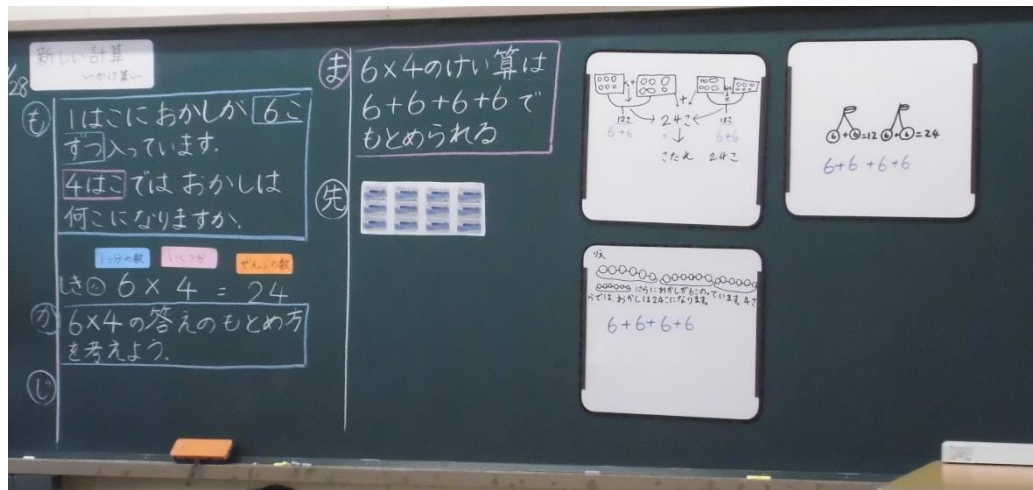 /28
新しい計算
〜かけ算〜
も
1はこにおかしが 6こ
ずつ入っています.
4はこではおかしは
何こになりますか.
1つ分の数
いくつ分
ぜんぶの数
しき 6×4=24
か
6×4の答えのもとめ方
を考えよう.
じ
ま
6×4のけい算は
6+6+6+6で
もとめられる
先
+
12こ → 24こ ← 12こ
6+6 + 6+6
こたえ 24こ
6+6=12 6+6=24
6+6+6+6
さらにおかしが6こ入っています. 4さ
らでは、おかしは24こになります。
6+6+6+6